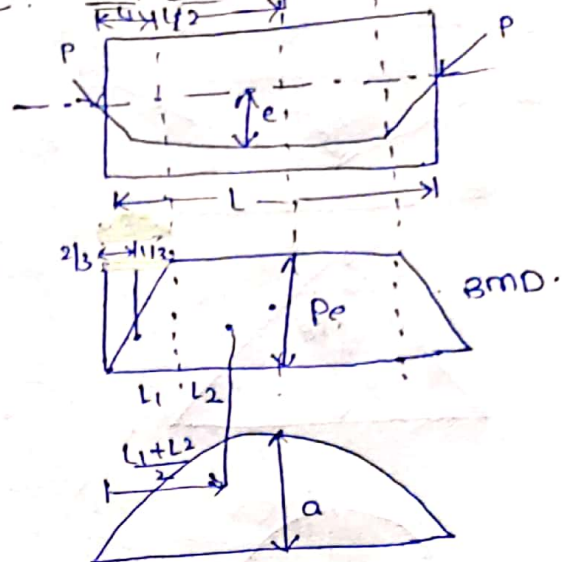 L1 L/2
P
P
e
L
2/3 1/3
BMD.
Pe
L1 L2
L1+L2
2
a